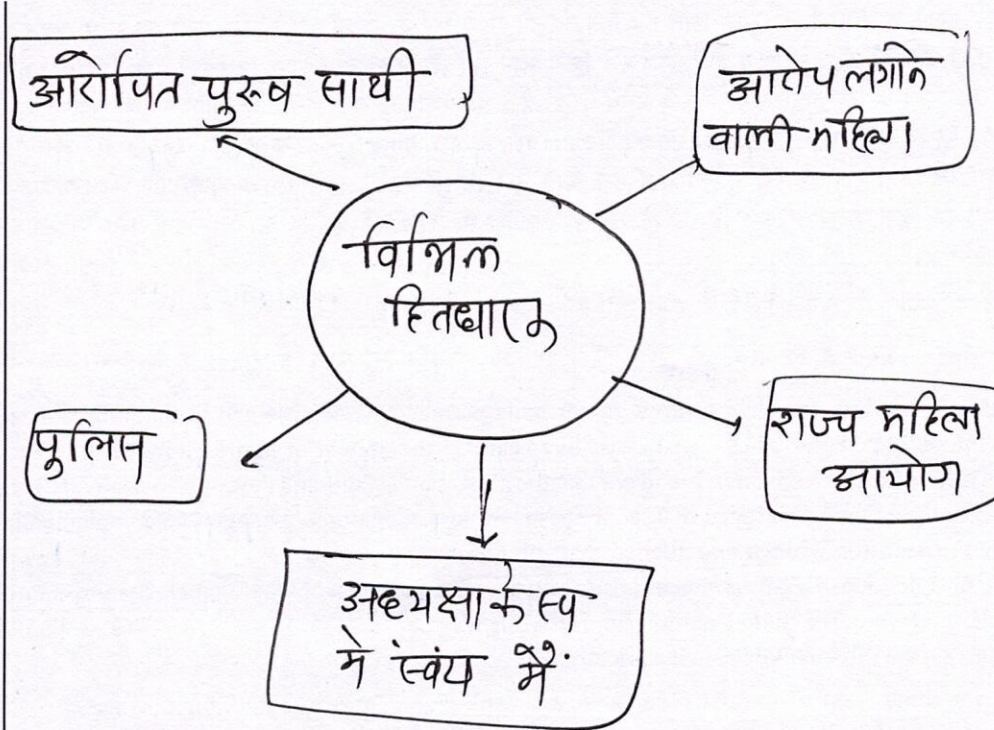 आरोपित पुरुष साथी
आरोप लगाने
वाली महिला
विभिन्न
हितधारक
पुलिस
राज्य महिला
आयोग
अध्यक्षा के रूप
मे स्वंय मैं